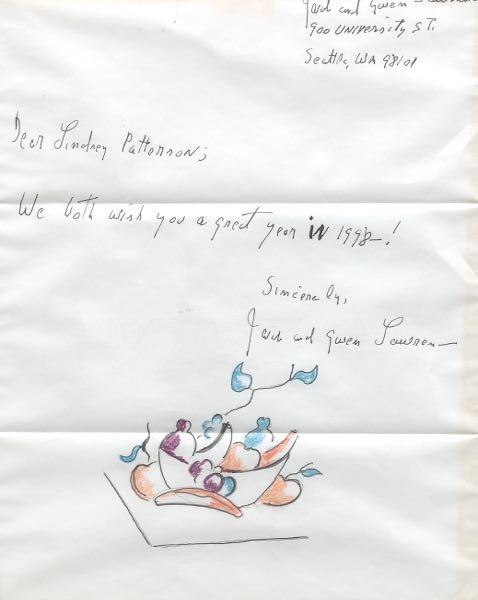 and Gwen
900 UNIVERSITY ST.
Seattle, WA 98101
Dear Lindsey Patterson;
We both wish you a great year iN 1998!
Sincerely,
Jacob and Gwen Lawrence